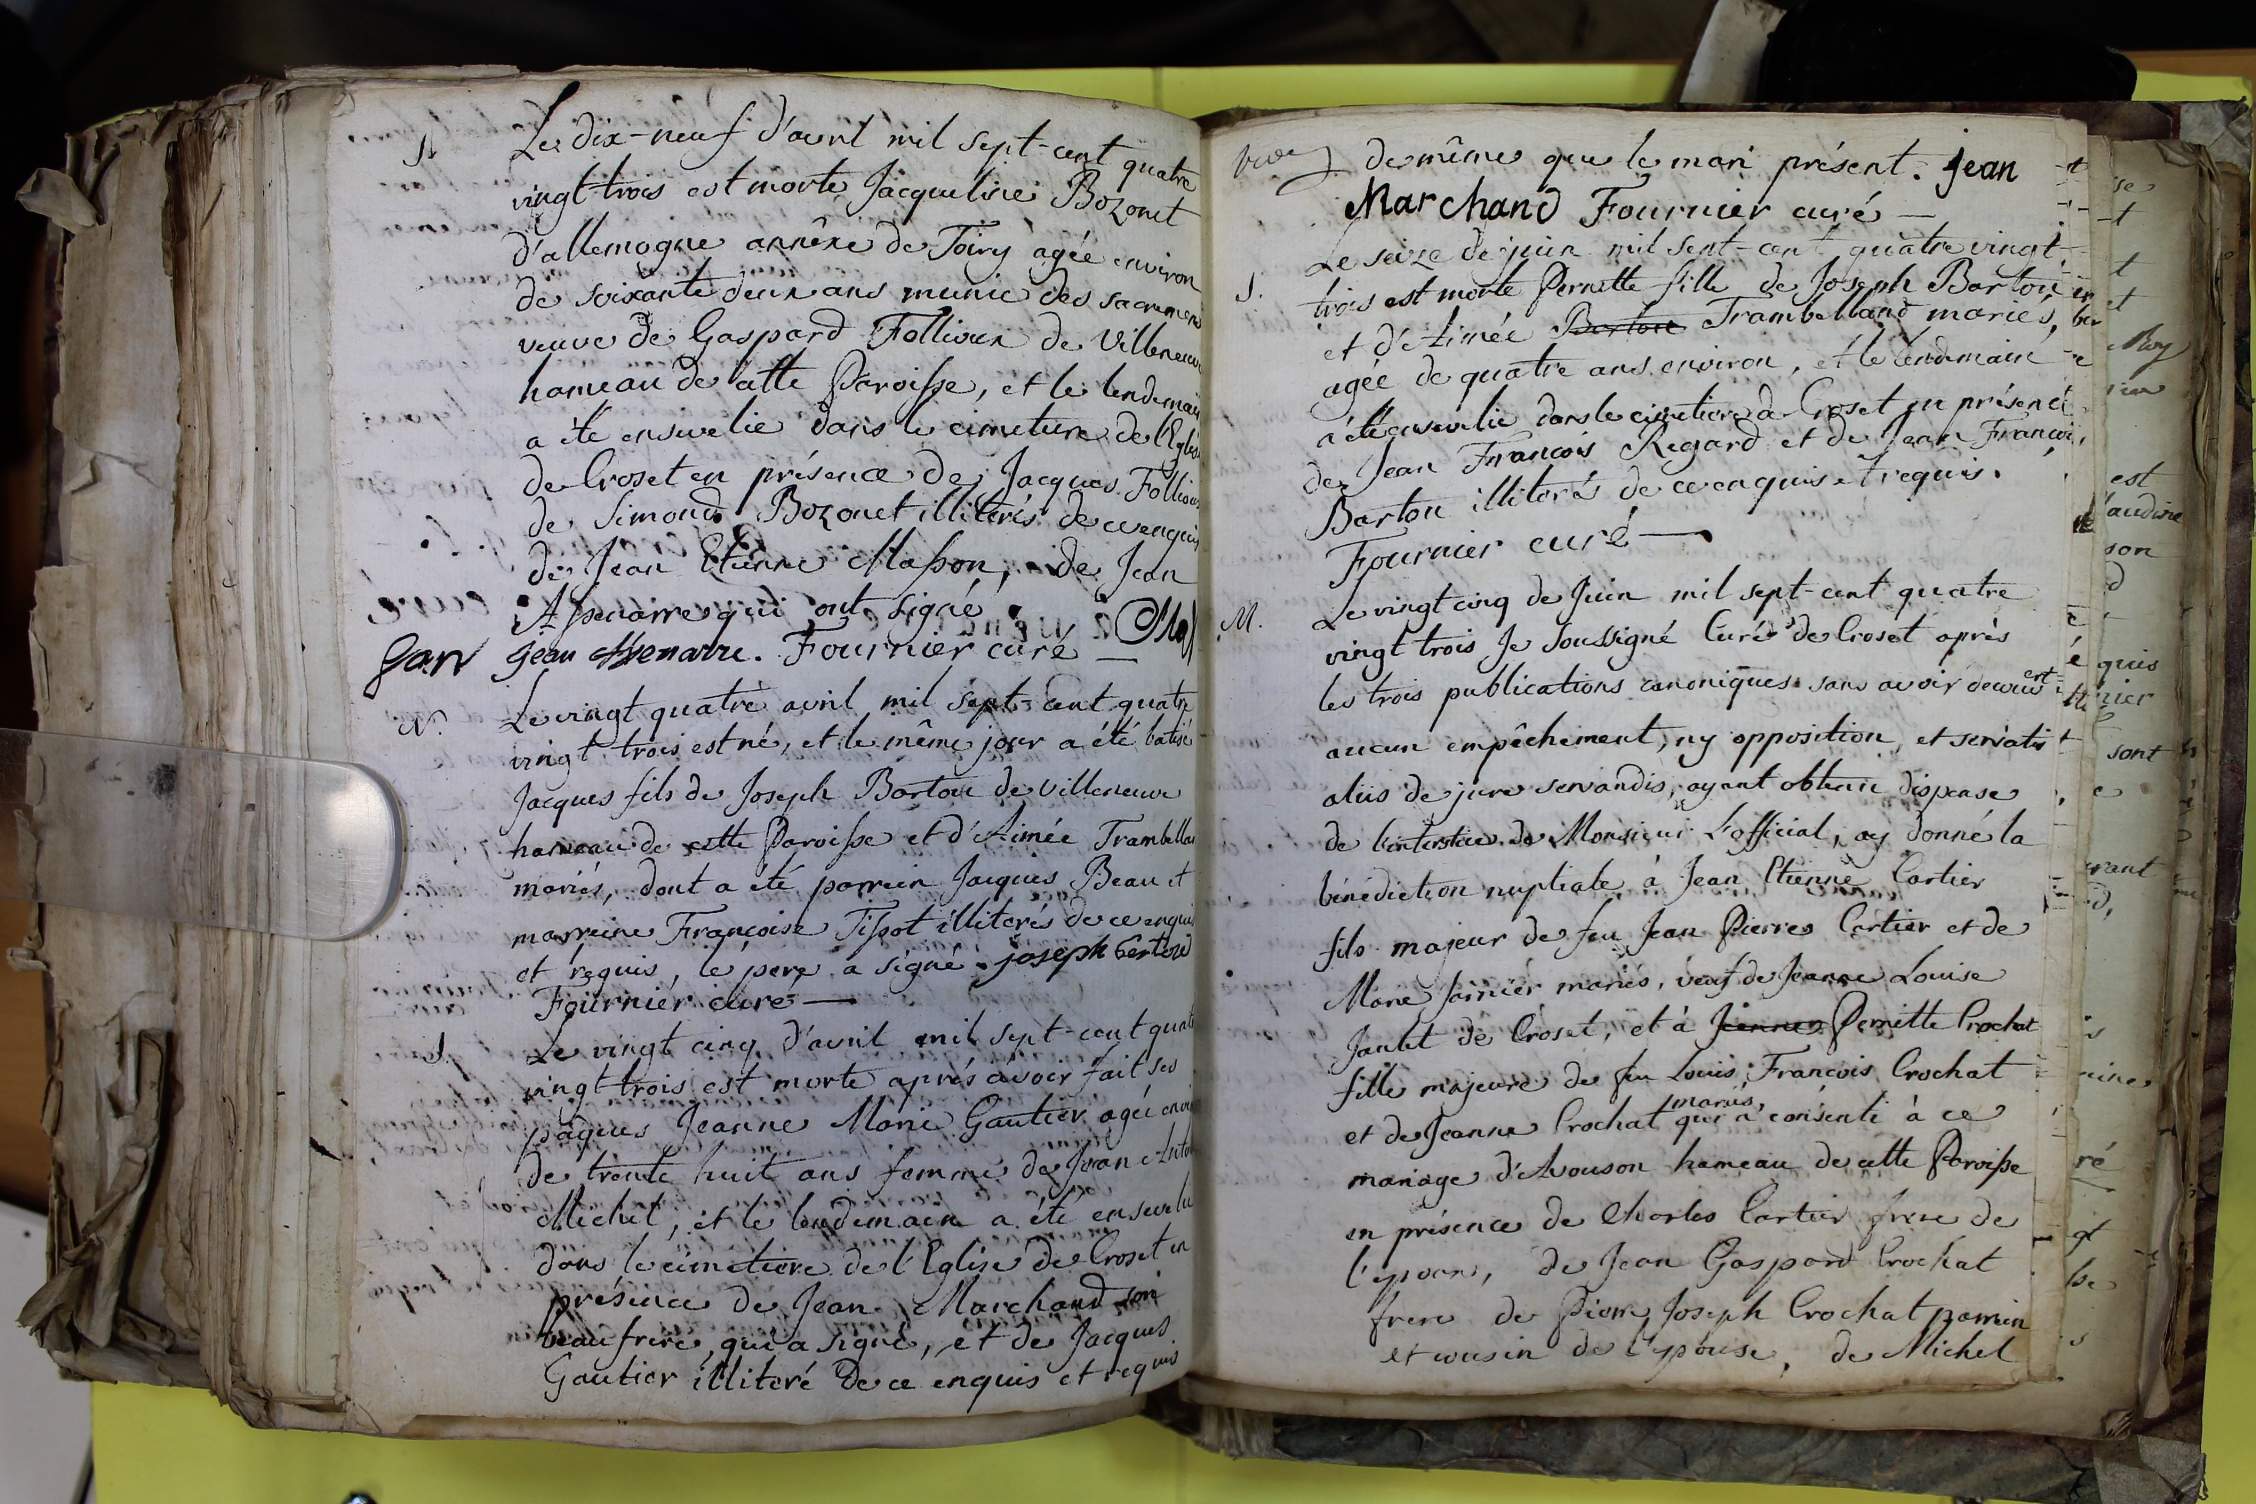 S. Le dix-neuf d'avril mil sept-cent quatre
vingt trois est morte Jacqueline Bozonet
d'allemogne annêxe de Toiry agée environ
de soixante deux ans munie des sacremens
veuve de Gaspard Follioux de Villeneuve
hameau de cette Paroisse, et le lendemain
a été ensevelie dans le cimetiere de l'Eglise
de Croset en présence de Jacques Follioux
de Simond Bozonet illiterés de ce enquis
de Jean Etienne Masson, de Jean
Assenarre qui ont signé
jean Assenarre. Fournier curé —
N. Le vingt quatre avril mil sept-cent quatre
vingt trois est né, et le même jour a été batisé
Jacques fils de Joseph Bartou de Villeneuve
hameau de cette Paroisse et d'Aimée Trambelland
mariés, dont a été parrein Jacques Beau et
marreine Françoise Tissot illiterés de ce enquis
et requis, le pere a signé. joseph
Fournier curé —
S. Le vingt cinq d'avril mil sept-cent quatre
vingt trois est morte aprés avoir fait ses
pâques Jeanne Marie Gautier agée environ
de trente huit ans femme de Jean Antoine
Michel, et le lendemain a été ensevelie
dans le cimetiere de l'Eglise de Croset en
présence de Jean Marchand son
beaufrere qui a signé, et de Jacques
Gautier illiteré de ce enquis et requis
de même que le mari présent. jean
Marchand Fournier curé —
S. Le seize de juin mil sept-cent quatre vingt
trois est morte Pernette fille de Joseph Bartou
et d'Aimée Bartou Trambelland mariés,
agée de quatre ans environ, et le lendemain
a été ensevelie dans le cimetiere de Croset en présence
de Jean François Regard et de Jean François
Bartou illiterés de ce enquis et requis.
Fournier curé —
M. Le vingt cinq de Juin mil sept-cent quatre
vingt trois Je soussigné Curé de Croset aprés
les trois publications canoniques sans avoir decouvert
aucun empêchement, ny opposition, et servatis
aliis de jure servandis, ayant obtenu dispense
de l'interstice de Monsieur L'official, ay donné la
bénédiction nuptiale à Jean Etienne Cartier
fils majeur de feu Jean Pierre Cartier et de
Marie Jarnier mariés, veuf de Jeanne Louise
Jantet de Croset, et à Jeanne Pernette Crochat
fille majeure de feu Louis François Crochat
et de Jeanne Crochat mariés, qui a consenti à ce
mariage d'Avouson hameau de cette Paroisse
en présence de Charles Cartier frere de
l'epoux, de Jean Gaspard Crochat
frere de Pierre Joseph Crochat parrein
et cousin de l'epouse, de Michel